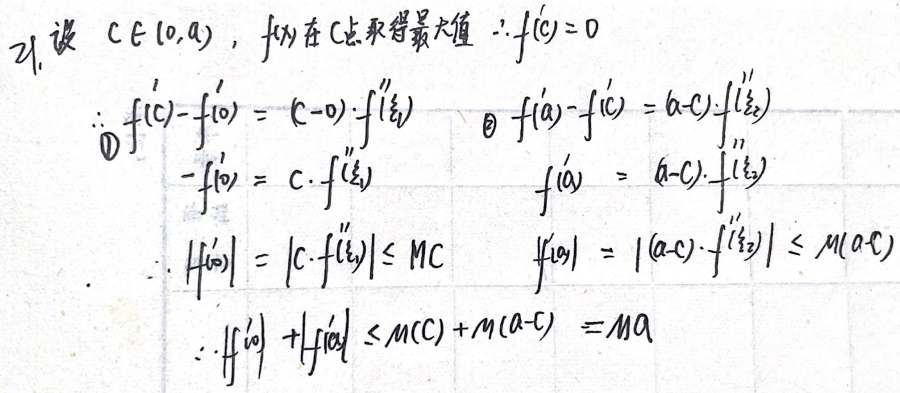 21. 设 C∈(0,a), f(x)在C点取得最大值 ∴f'(c)=0
∴① f'(c)-f'(0) = (c-0)·f''(ξ₁) ② f'(a)-f'(c) = (a-c)·f''(ξ₂)
-f'(0) = c·f''(ξ₁) f'(a) = (a-c)·f''(ξ₂)
∴ |f'(0)| = |c·f''(ξ₁)| ≤ MC |f'(a)| = |(a-c)·f''(ξ₂)| ≤ M(a-c)
∴ |f'(0)| + |f'(a)| ≤ M(c)+M(a-c) = Ma